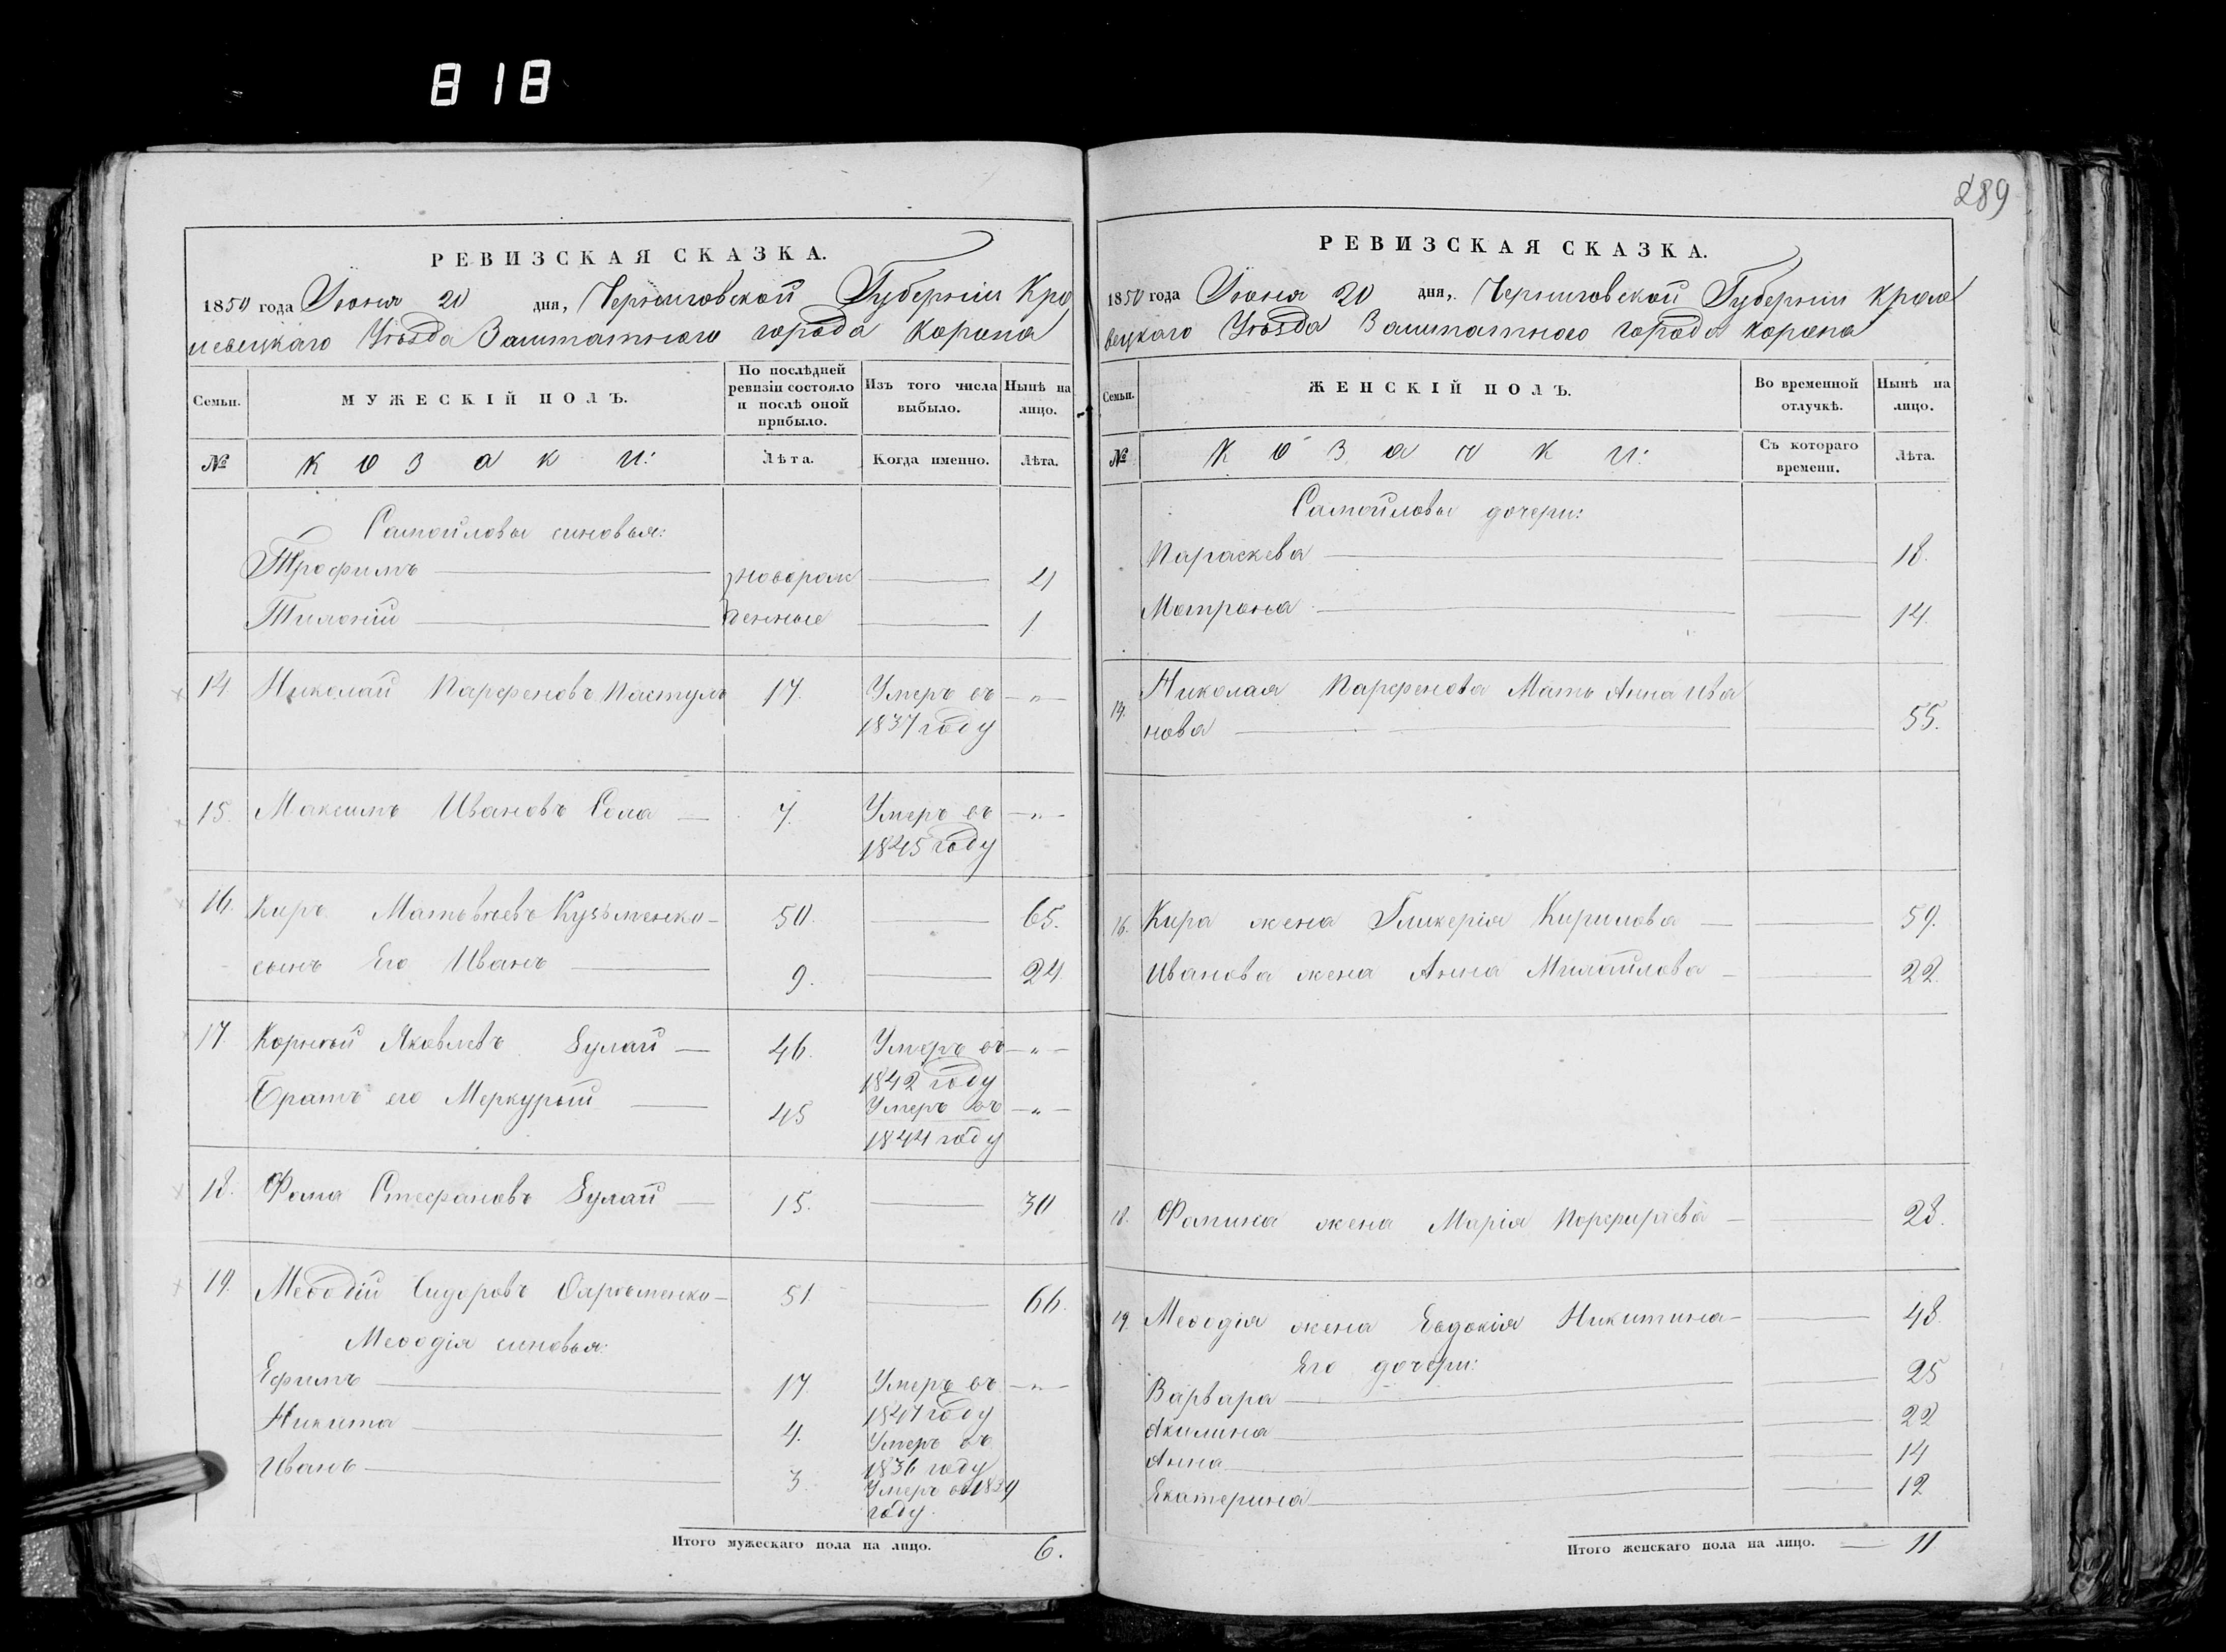 818
289
РЕВИЗСКАЯ СКАЗКА.
1850 года Іюня 20 дня, Черниговской Губерніи Кро
левецкаго Уѣзда Заштатного города Коропа
Семьи.
МУЖЕСКІЙ ПОЛЪ.
По послѣдней ревизіи состояло и послѣ оной прибыло.
Изъ того числа выбыло.
Нынѣ на лицо.
№
Козаки:
Лѣта.
Когда именно.
Лѣта.
Самойловы синовья:
Трофимъ новорож 4
Тихоній денные 1
14 Николай Парфеновъ Пастухъ 17. Умеръ въ - " -
1837 году
15. Максимъ Ивановъ Сома 7. Умеръ въ - " -
1845 году
16. Киръ Матвѣевъ Кузьменко 50. 65.
сынъ Его Иванъ 9. 24
17. Корнѣй Яковлевъ Булай 46. Умеръ въ - " -
1842 году
Братъ его Меркурій 45 Умеръ въ - " -
1844 году
18. Фома Стефановъ Булай 15. 30
19. Меѳодій Сидоровъ 51. 66.
Меѳодія синовья:
Ефимъ 17. Умеръ въ - " -
1847 году
Никита 4. Умеръ въ
1836 году
Иванъ 3. Умеръ въ 1839
году.
Итого мужескаго пола на лицо. 6.
РЕВИЗСКАЯ СКАЗКА.
1850 года Іюня 20 дня, Черниговской Губерніи Кроле
вецкаго Уѣзда Заштатного города Коропа
Семьи.
ЖЕНСКІЙ ПОЛЪ.
Во временной отлучкѣ.
Нынѣ на лицо.
№
Козачки:
Съ котораго времени.
Лѣта.
Самойловы дочери:
Параскева 18.
Матрона 14.
14. Николая Парфенова Мать Анна Ива
нова 55.
16. Кира жена Гликерія Кирилова 59.
Иванова жена Анна Михайлова 22.
18. Фомина жена Марія Порфиріева 28.
19. Меѳодія жена Евдокія Никитина 48.
Его дочери:
Варвара 25
Акилина 22
Анна 14
Екатерина 12
Итого женскаго пола на лицо. 11